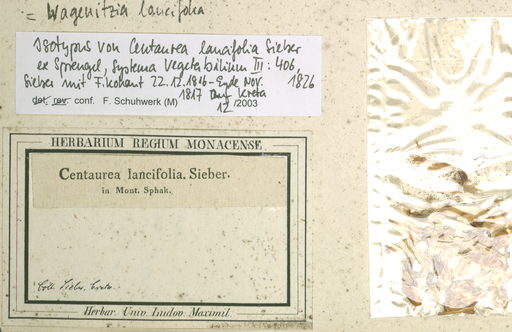 = Wagenitzia lancifolia
Isotypus von Centaurea lancifolia Sieber
ex Sprengel, Systema Vegetabilium III: 406,
1826
Sieber mit F. Kohaut 22.12.1816 - Ende Nov.
1817 auf Kreta
det. rev. conf. F. Schuhwerk (M) 12/2003
HERBARIUM REGIUM MONACENSE
Centaurea lancifolia. Sieber.
in Mont. Sphak.
Coll. Sieber. Creta.
Herbar. Univ. Ludov. Maximil.